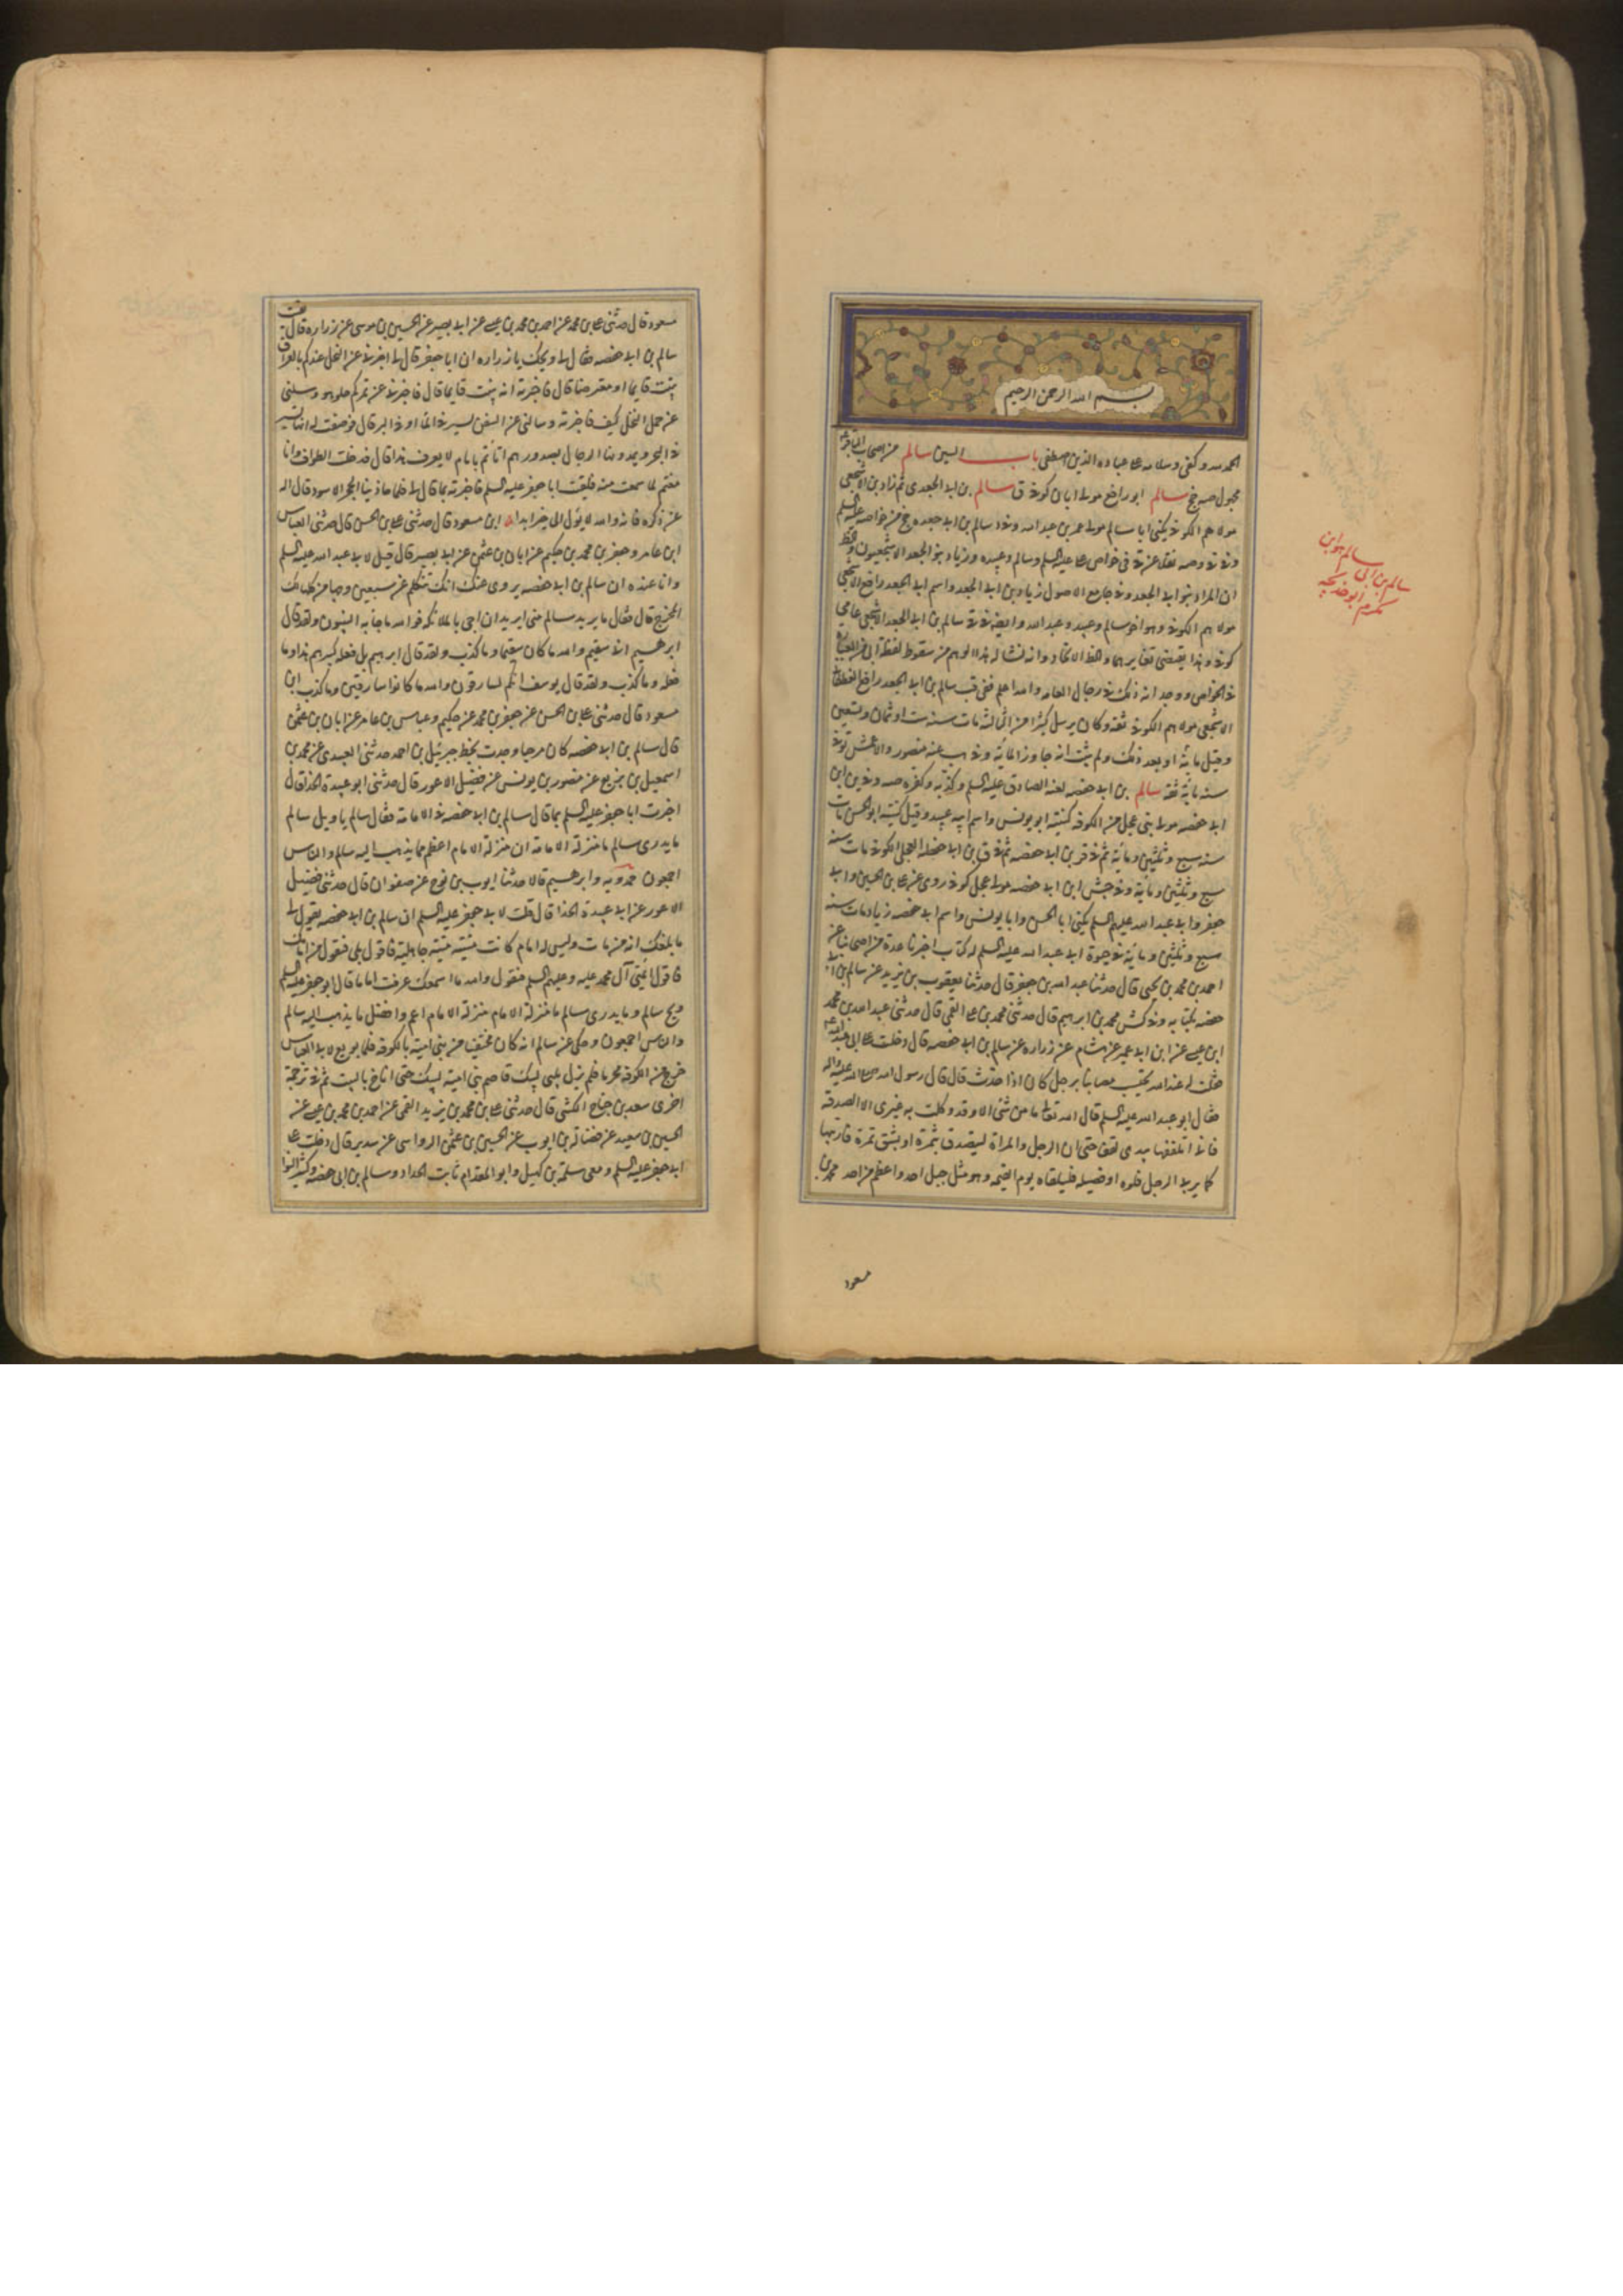 بسم الله الرحمن الرحيم
الحمد لله وكفى وسلام على عباده الذين اصطفى باب السين سالم من اصحاب الباقر
مجهول صه جخ سالم ابو رافع مولى ابان كوفى ق سالم بن ابى الجعدى ثم زاد بن الاشجعى
مولاهم الكوفى يكنى ابا سالم مولى عمر بن عبد الله وفى سالم بن ابى جعده خ من خواصه عليه السلم
فى خواص على عليه السلم وسالم وعبيده وزياد بنو الجعد الاشجعيون
ان المراد بنو ابى الجعد وفى جامع الاصول زياد بن ابى الجعد واسم ابى الجعد رافع الاشجعى
مولاهم الكوفى وهو اخو سالم وعبيد وعبد الله وايضا سالم بن ابى الجعد الاشجعى عامى
كوفى وهذا يقتضى تغايرهما
فى الخواص ووجد انه ذلك فى رجال العامه والله اعلم ففى قب سالم بن ابى الجعد رافع الغطفانى
الاشجعى مولاهم الكوفى ثقه وكان يرسل كثيرا من الثالثه مات سنه ست او ثمان وتسعين
وقيل مائه او بعد ذلك ولم يثبت انه جاوز المائه وفى هب عنه منصور والاعمش توفى
سنه مائة ثقه سالم بن ابى حفصه لعنه الصادق عليه السلم وكذبه وكفره صه وفى د بن ابى
ابى حفصه مولى بنى عجل من الكوفه كنيته ابو يونس واسم ابيه عبيد وقيل كنيته ابو الحسن مات
سنه سبع وثلثين ومائة ثم فى قر بن ابى حفصه ثم فى ق بن ابى حفصه العجلى الكوفى مات سنه
سبع وثلثين ومائة وفى جش ابن ابى حفصه مولى عجل كوفى روى عن على بن الحسين وابى
جعفر وابى عبد الله عليهم السلم يكنى ابا الحسن وابا يونس واسم ابى حفصه زياد مات سنه
سبع وثلثين ومائة فى حيوة ابى عبد الله عليه السلم له كتاب اخبرنا عدة من اصحابنا عن
احمد بن محمد بن يحيى قال حدثنا عبد الله بن جعفر قال حدثنا يعقوب بن يزيد عن سالم بن ابى
حفصه بكتابه وفى كش محمد بن ابراهيم قال حدثنى محمد بن على القمى قال حدثنى عبد الله بن محمد
ابن عيسى عن ابن ابى عمير عن هشام عن زراره عن سالم بن ابى حفصه قال دخلت على ابى عبد الله
فقلت له عند الله نحتسب مصابنا برجل كان اذا حدث قال قال رسول الله صلى الله عليه واله
فقال ابو عبد الله عليه السلم قال الله تعالى ما من شئ الا وقد وكلت به غيرى الا الصدقه
فانى اتلقفها بيدى لقفا حتى ان الرجل والمراة ليتصدق بثمرة او بشق تمرة فاربيها
كما يربى الرجل فلوه او فصيله فيلقاه يوم القيمه وهو مثل جبل احد واعظم من احد محمد بن
مسعود
سالم هو ابن
سالم بن ابى
مكرم ابو خديجه
مسعود قال حدثنى على بن محمد عن احمد بن محمد بن عيسى عن ابى بصير عن الحسين بن موسى عن زراره قال لقيت
سالم بن ابى حفصه فقال لى ويحك يا زراره ان ابا جعفر قال لى اخبرنى عن النخل عندكم بالعراق
ينبت قايما او معترضا قال فاخبرته انه ينبت قايما قال فاخبرنى عن تمركم حلو هو وسئلنى
عن حمل النخل كيف فاخبرته وسالنى عن السفن تسير فى الماء او فى البر قال فوصفت له انها تسير
فى البحر ويمدونها الرجال بصدورهم اتأتم بامام لا يعرف هذا قال فدخلت الطواف وانا
مغتم لما سمعت منه فلقيت ابا جعفر عليه السلم فاخبرته بما قال لى فلما حاذينا الحجر الاسود قال اله
عن ذكره فانه والله لا يؤل الى خير ابدا ابن مسعود قال حدثنى على بن الحسن قال حدثنى العباس
ابن عامر وجعفر بن محمد بن حكيم عن ابان بن عثمن عن ابى بصير قال قيل لابى عبد الله عليه السلم
وانا عنده ان سالم بن ابى حفصه يروى عنك انك تتكلم عن سبعين وجها من كلها لك
المخرج قال فقال ما يريد سالم منى ايريد ان اجى بالملائكه فوالله ما جاء به النبيون ولقد قال
ابرهيم انى سقيم والله ما كان سقيما وما كذب ولقد قال ابرهيم بل فعله كبيرهم هذا وما
فعله وما كذب ولقد قال يوسف انكم لسارقون والله ما كانوا سارقين وما كذب ابن
مسعود قال حدثنى على بن الحسن عن جعفر بن محمد عن حكيم وعباس بن عامر عن ابان بن عثمن
قال سالم بن ابى حفصه كان مرجيا وجدت بخط جبرئيل بن احمد حدثنى العبيدى عن محمد بن
اسمعيل بن بزيع عن منصور بن يونس عن فضيل الاعور قال حدثنى ابو عبيدة الحذا قال
اخبرت ابا جعفر عليه السلم بما قال سالم بن ابى حفصه فى الامامه فقال سالم يا ويل سالم
ما يدرى سالم ما منزلة الامامه ان منزلة الامام اعظم مما يذهب اليه سالم والناس
اجمعون حمدويه وابرهيم قالا حدثنا ايوب بن نوح عن صفوان قال حدثنى فضيل
الاعور عن ابى عبيدة الحذا قال قلت لابى جعفر عليه السلم ان سالم بن ابى حفصه يقول لى
ما بلغك انه من مات وليس له امام كانت ميتته ميتة جاهلية فاقول بلى فيقول من امامك
فاقول ائمتى آل محمد عليه وعليهم السلم فيقول والله ما اسمعك عرفت اماما قال ابو جعفر عليه السلم
ويح سالم وما يدرى سالم ما منزلة الامام منزلة الامام اعظم وافضل ما يذهب اليه سالم
والناس اجمعون وحكى عن سالم انه كان مختفيا من بنى امية بالكوفه فلما بويع لابى العباس
خرج من الكوفه محرما فلم يزل يلبى لبيك قاصم بنى امية لبيك حتى اناخ بالبيت ثم فى ترجمة
اخرى سعد بن جناح الكشى قال حدثنى على بن محمد بن يزيد القمى عن احمد بن محمد بن عيسى عن
الحسين بن سعيد عن فضالة بن ايوب عن الحسين بن عثمن الرواسى عن سدير قال دخلت على
ابى جعفر عليه السلم ومعى سلمة بن كهيل وابو المقدام ثابت الحداد وسالم بن ابى حفصه وكثير النوا